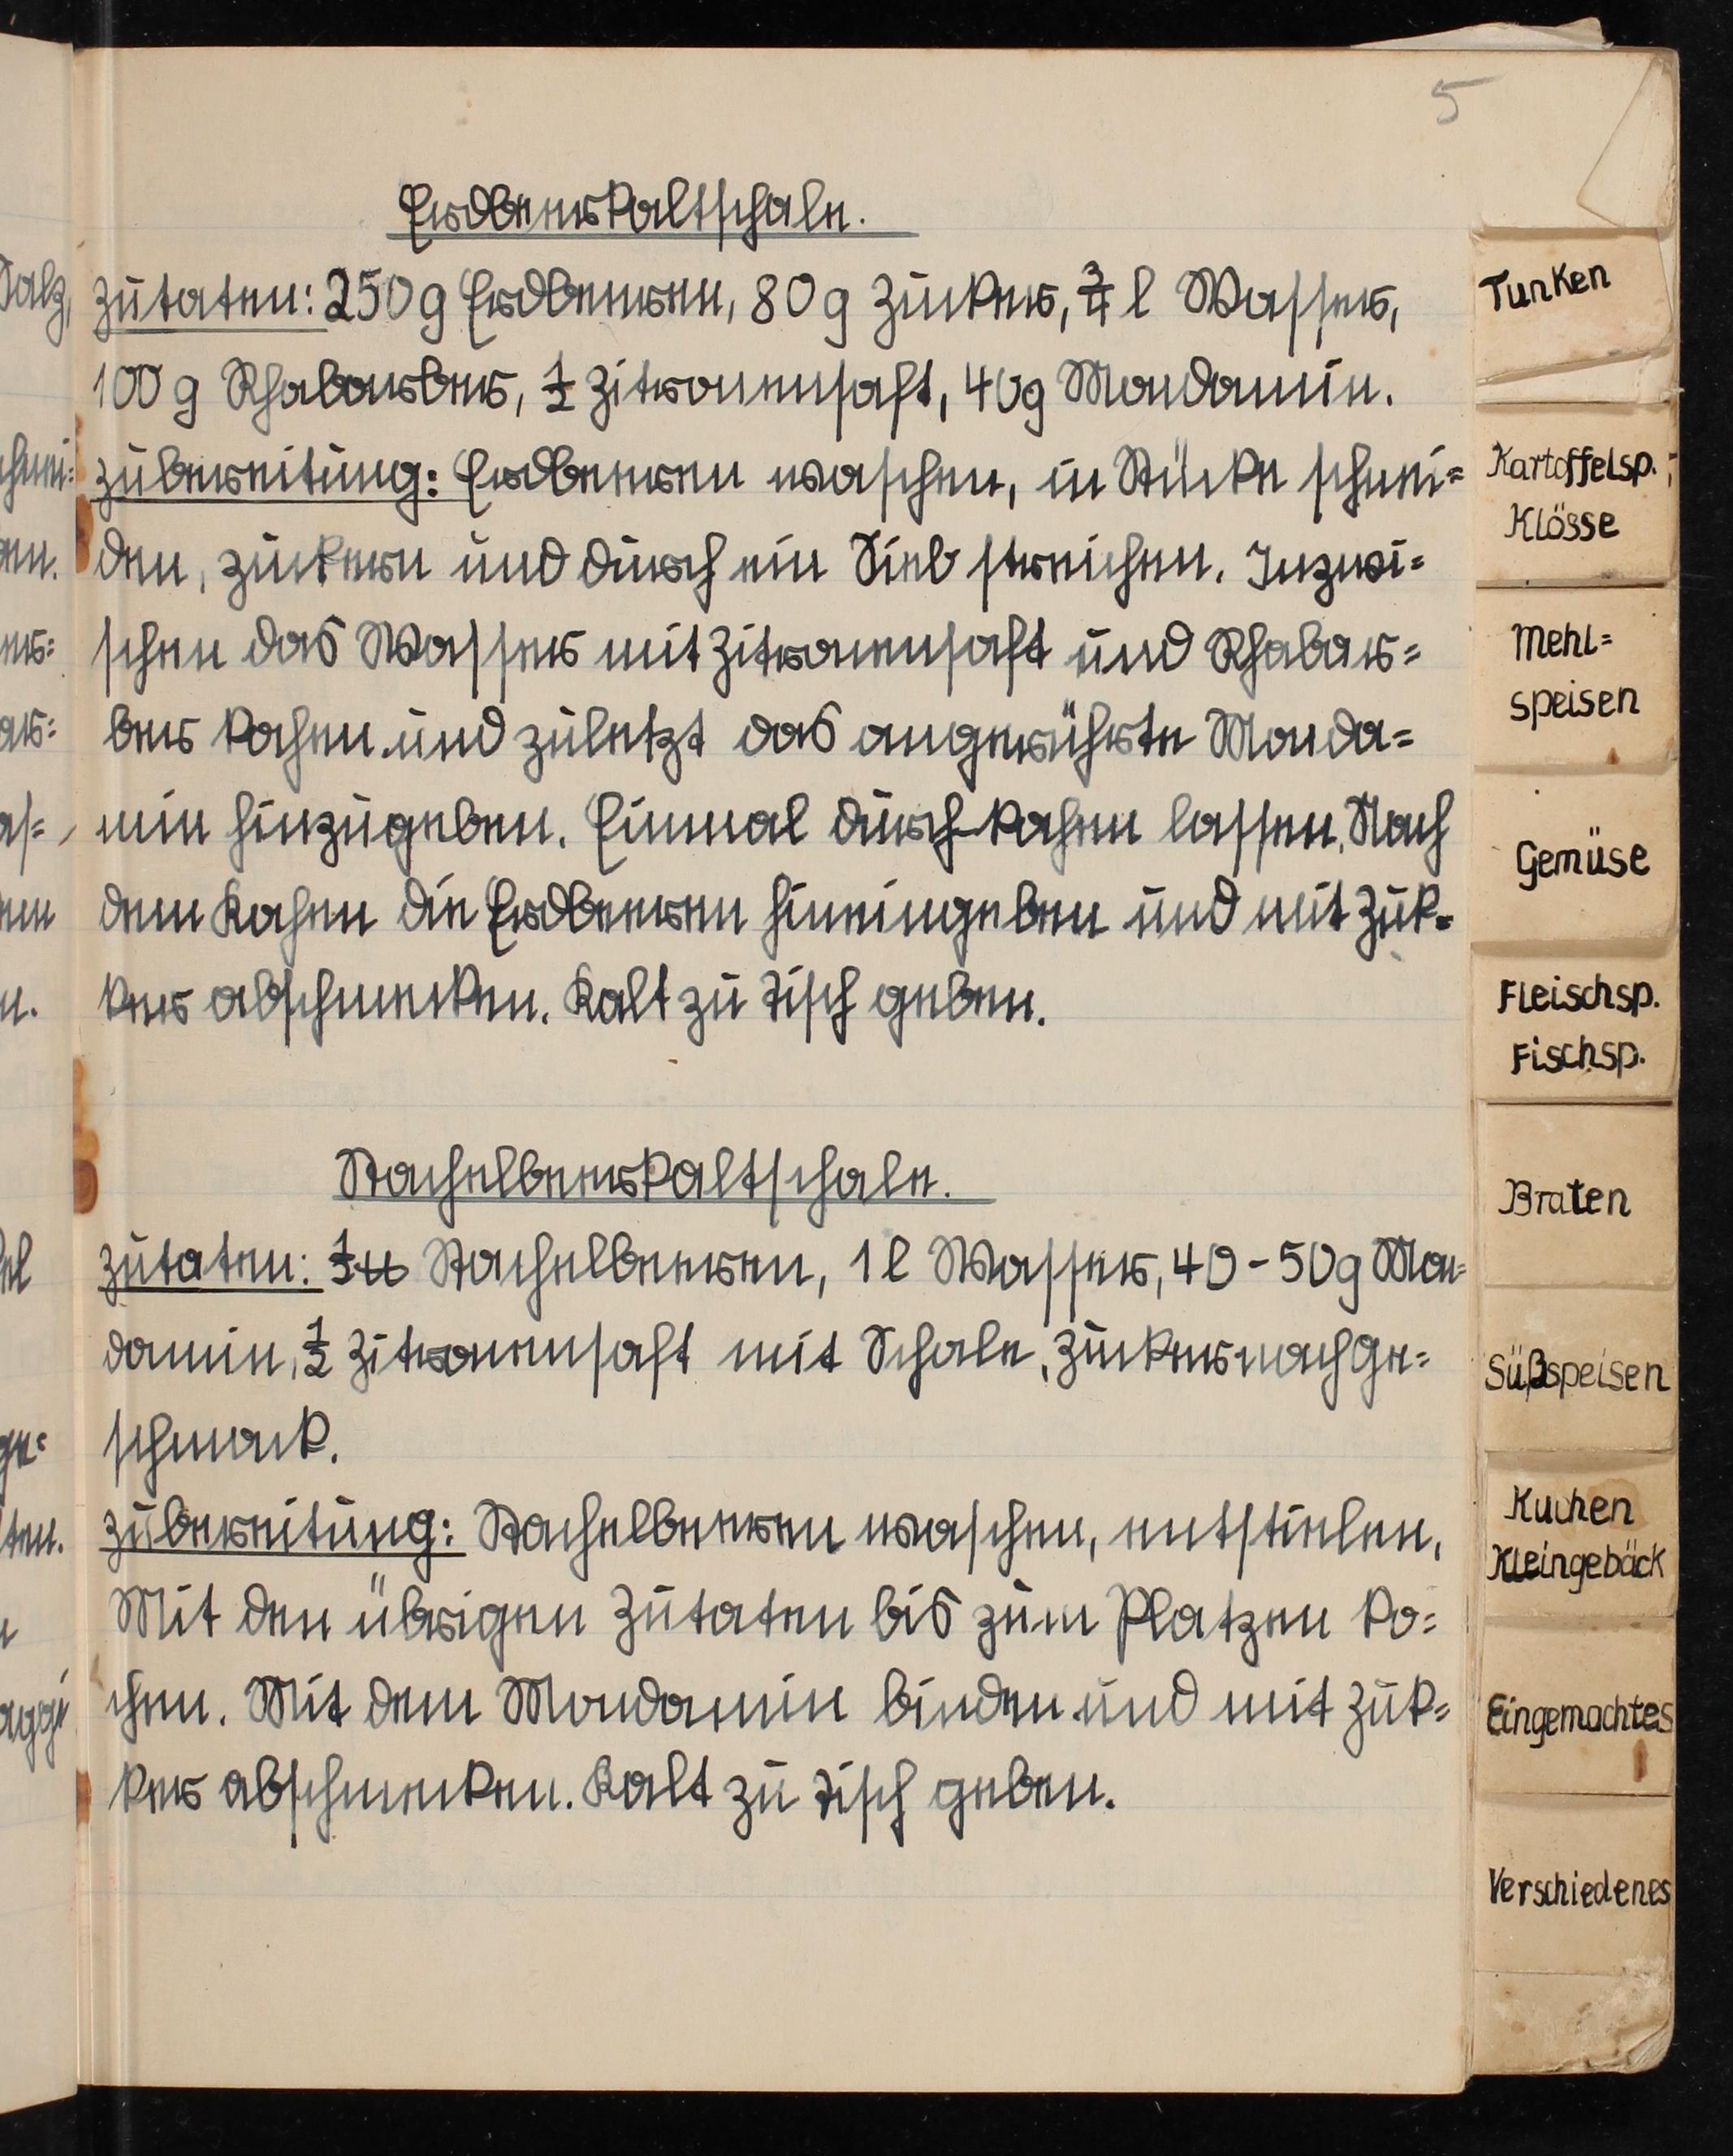 5
Erdbeerkaltschale.
Zutaten: 250 g Erdbeeren, 80 g Zucker, 3/4 l Wasser,
100 g Rhabarber, 1/2 Zitronensaft, 40g Mondamin.
Zubereitung: Erdbeeren waschen, in Stücke schnei=
den, zuckern und durch ein Sieb streichen. Inzwi=
schen das Wasser mit Zitronensaft und Rhabar=
ber kochen und zuletzt das angerührte Monda=
min hinzugeben. Einmal durch kochen lassen. Nach
dem Kochen die Erdbeeren hineingeben und mit Zuk=
ker abschmecken. Kalt zu Tisch geben.
Stachelbeerkaltschale.
Zutaten: Stachelbeeren, 1 l Wasser, 40-50g Mon=
damin, 1/2 Zitronensaft mit Schale, Zucker nach Ge=
schmack.
Zubereitung: Stachelbeeren waschen, entstielen,
Mit den übrigen Zutaten bis zum Platzen ko=
chen. Mit dem Mondamin binden und mit Zuk=
ker abschmecken. Kalt zu Tisch geben.
Tunken
Kartoffelsp.,
Klösse
Mehl=
speisen
Gemüse
Fleischsp.
Fischsp.
Braten
Süßspeisen
Kuchen
Kleingebäck
Eingemachtes
Verschiedenes